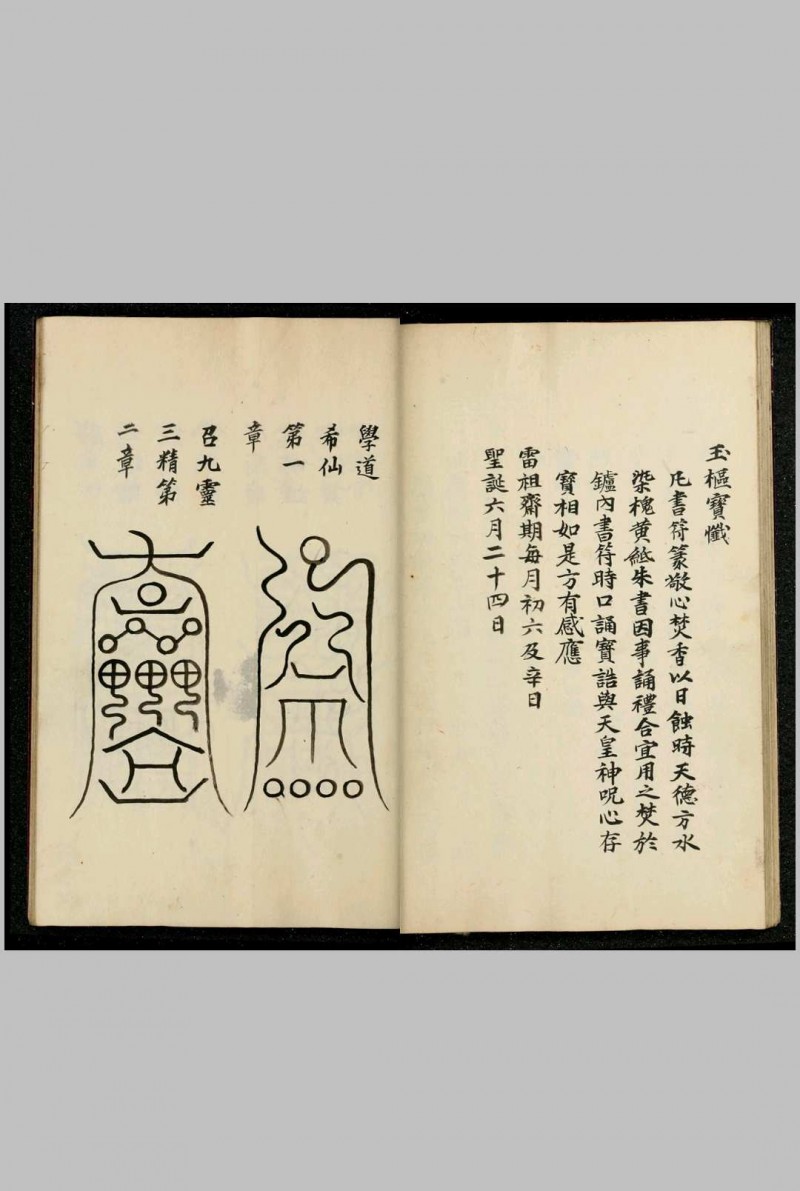 玉樞寶懺
凡書符篆敬心焚香以日蝕時天德方水
染槐黄紙朱書因事誦禮合宜用之焚於
鑪內書符時口誦寶誥與天皇神呪心存
寶相如是方有感應
雷祖齋期每月初六及辛日
聖誕六月二十四日
學道
希仙
第一
章
召九靈
三精第
二章